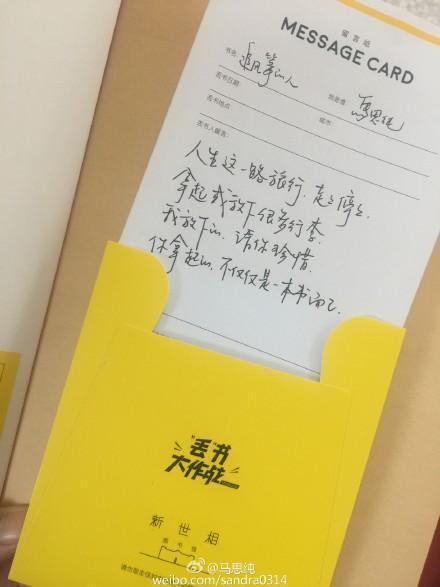 留言纸
MESSAGE CARD
书名: 追风筝的人
丢书日期: 我是谁: 马思纯
丢书地点: 城市:
丢书人留言:
人生这一路旅行,走走停停.
拿起或放下很多行李.
我放下的,请你珍惜.
你拿起的,不仅仅是一本书而已.
丢书
大作战
新世相
图书馆
@马思纯
weibo.com/sandra0314